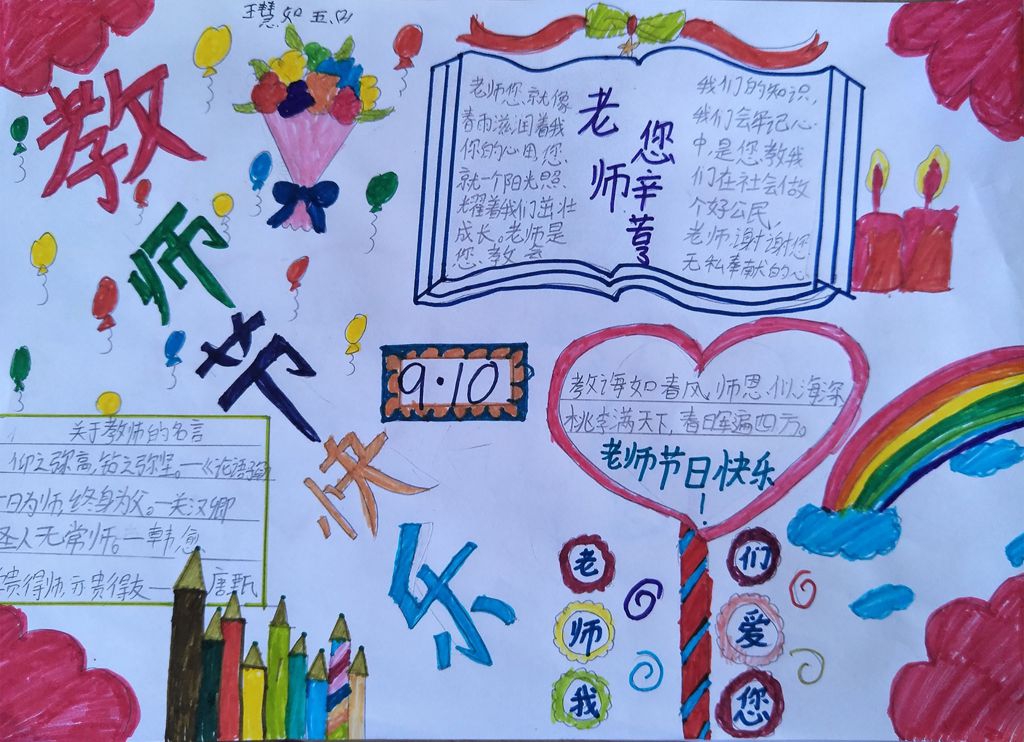 王慧如 五.(2)
教师节快乐
老师您就像
春雨滋润着我
你的心田您
就一个阳光照
耀着我们茁壮
成长。老师是
您教会
老师
您辛苦
我们的知识,
我们会牢记心
中,是您教我
们在社会做
个好公民,
老师,谢谢您
无私奉献的心
9·10
教诲如春风,师恩似海深
桃李满天下,春晖遍四方。
老师节日快乐
!
关于教师的名言
仰之弥高,钻之弥坚。—《论语
一日为师,终身为父。—关汉卿
圣人无常师。—韩愈
贵得师,亦贵得友——唐甄
老师我
们爱您